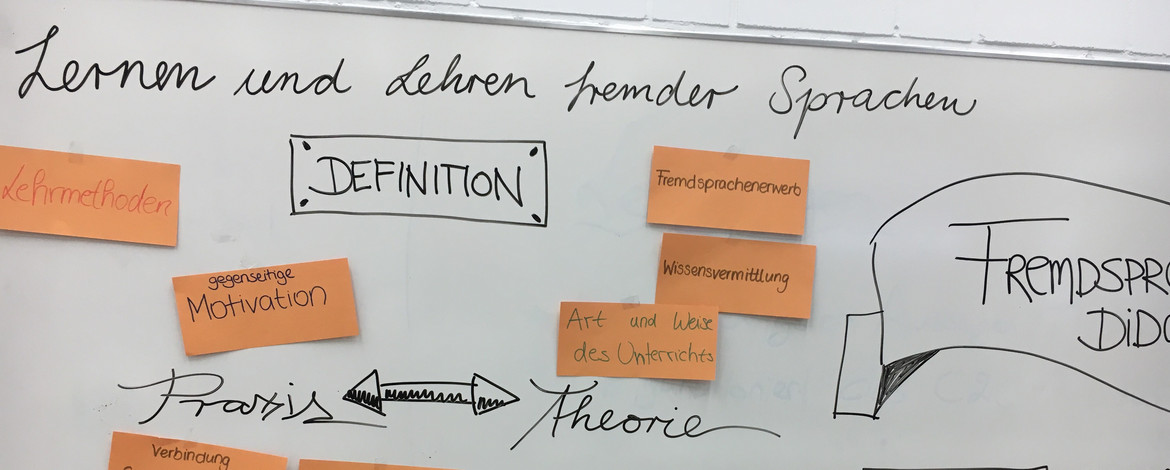 Lernen und Lehren fremder Sprachen
DEFINITION
Lehrmethoden
Fremdsprachenerwerb
gegenseitige
Motivation
Wissensvermittlung
Art und Weise
des Unterrichts
FREMDSPR
DID
Praxis
Theorie
Verbindung